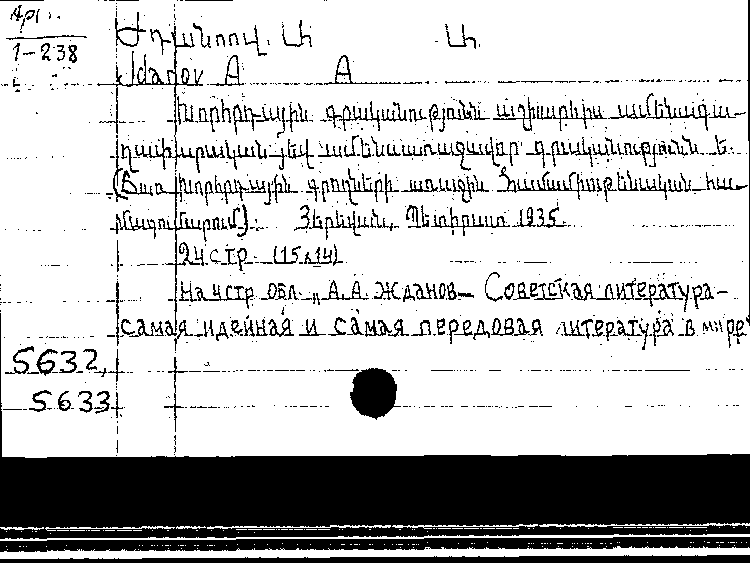 Арм.
1-238
Ժդանով. Ա. Ա.
Jdanov A A
Խորհրդային գրականությունն աշխարհիս ամենագա-
ղափարական յեվ ամենաառաջավոր գրականությունն ե.
(Ճառ խորհրդային գրողների առաջին համամիութենական հա-
մագումարում): Յերեվան, Պետհրատ 1935.
24 стр. (15х14)
На 4 стр обл. „А. А. Жданов— Советская литература-
самая идейная и самая передовая литература в мире“
5632,
5633